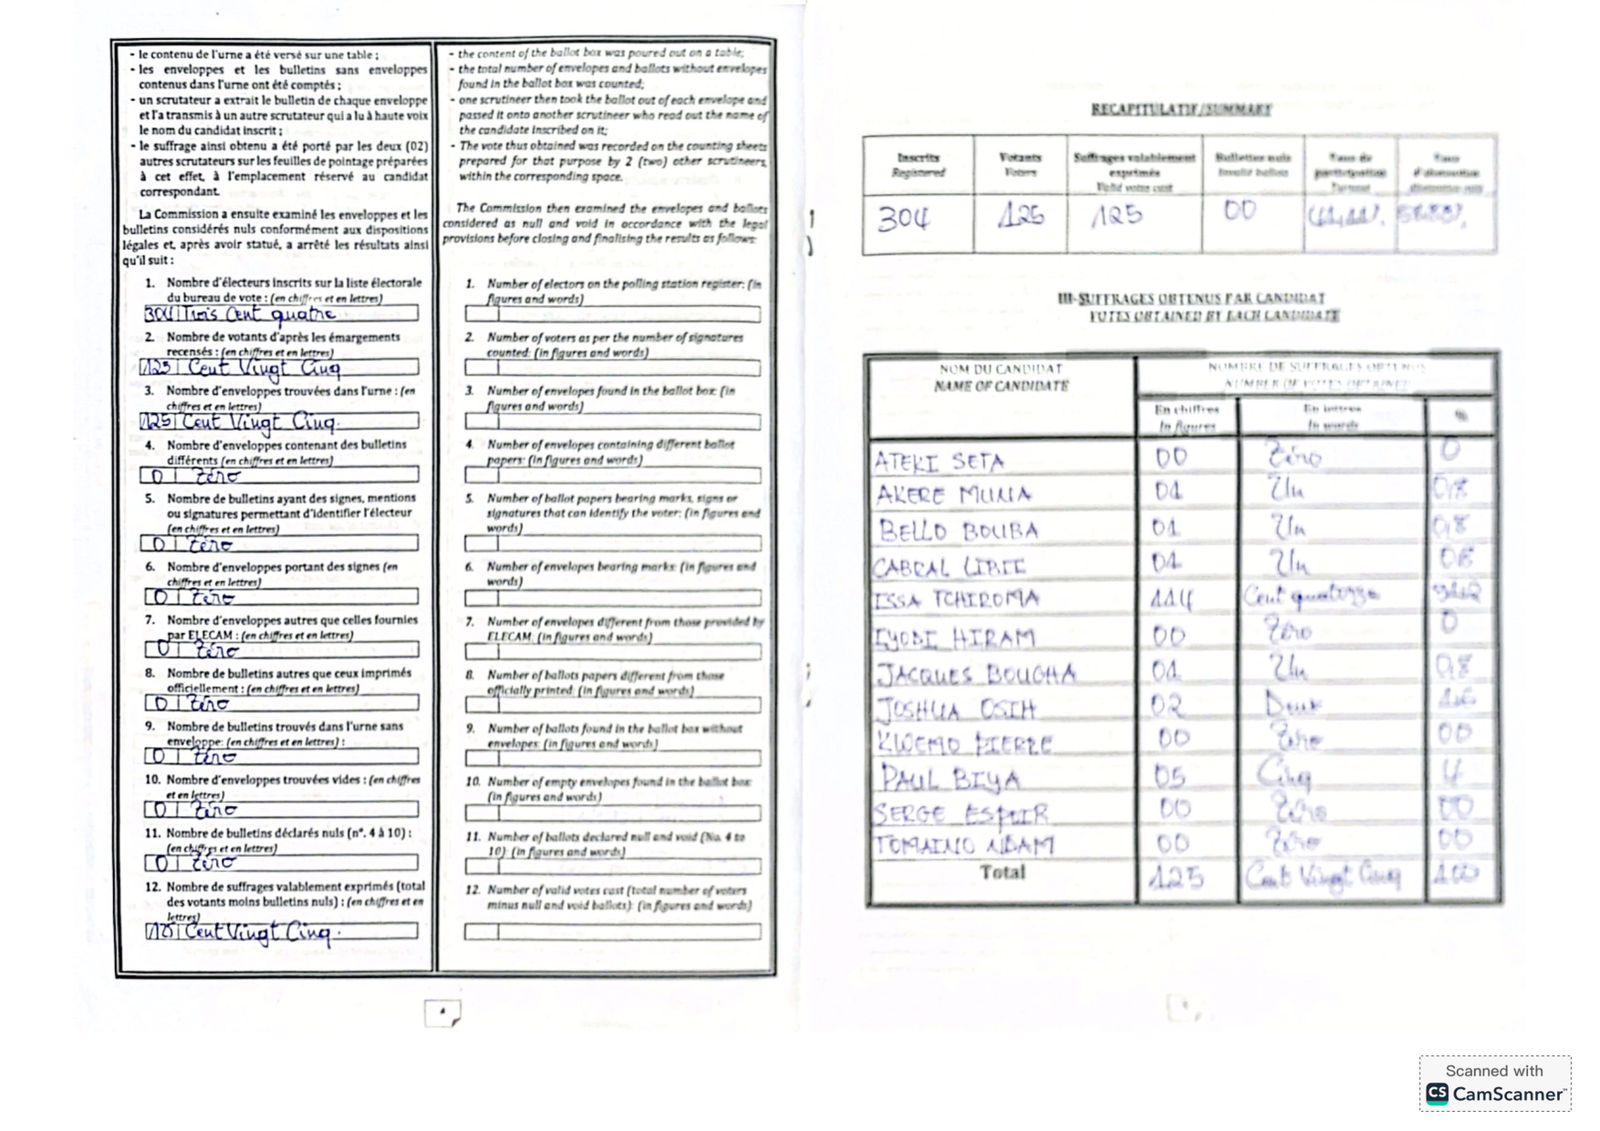 - le contenu de l'urne a été versé sur une table ;
- les enveloppes et les bulletins sans enveloppes
contenus dans l'urne ont été comptés ;
- un scrutateur a extrait le bulletin de chaque enveloppe
et l'a transmis à un autre scrutateur qui a lu à haute voix
le nom du candidat inscrit ;
- le suffrage ainsi obtenu a été porté par les deux (02)
autres scrutateurs sur les feuilles de pointage préparées
à cet effet, à l'emplacement réservé au candidat
correspondant.
La Commission a ensuite examiné les enveloppes et les
bulletins considérés nuls conformément aux dispositions
légales et, après avoir statué, a arrêté les résultats ainsi
qu'il suit :
1. Nombre d'électeurs inscrits sur la liste électorale
du bureau de vote : (en chiffres et en lettres)
304 Trois Cent quatre
2. Nombre de votants d'après les émargements
recensés : (en chiffres et en lettres)
125 Cent Vingt Cinq
3. Nombre d'enveloppes trouvées dans l'urne : (en
chiffres et en lettres)
125 Cent Vingt Cinq.
4. Nombre d'enveloppes contenant des bulletins
différents (en chiffres et en lettres)
0 Zéro
5. Nombre de bulletins ayant des signes, mentions
ou signatures permettant d'identifier l'électeur
(en chiffres et en lettres)
0 Zéro
6. Nombre d'enveloppes portant des signes (en
chiffres et en lettres)
0 Zéro
7. Nombre d'enveloppes autres que celles fournies
par ELECAM : (en chiffres et en lettres)
0 Zéro
8. Nombre de bulletins autres que ceux imprimés
officiellement : (en chiffres et en lettres)
0 Zéro
9. Nombre de bulletins trouvés dans l'urne sans
enveloppe: (en chiffres et en lettres) :
0 Zéro
10. Nombre d'enveloppes trouvées vides : (en chiffres
et en lettres)
0 Zéro
11. Nombre de bulletins déclarés nuls (n°. 4 à 10) :
(en chiffres et en lettres)
0 Zéro
12. Nombre de suffrages valablement exprimés (total
des votants moins bulletins nuls) : (en chiffres et en
lettres)
125 Cent Vingt Cinq.
- the content of the ballot box was poured out on a table;
- the total number of envelopes and ballots without envelopes
found in the ballot box was counted;
- one scrutineer then took the ballot out of each envelope and
passed it onto another scrutineer who read out the name of
the candidate inscribed on it;
- The vote thus obtained was recorded on the counting sheets
prepared for that purpose by 2 (two) other scrutineers,
within the corresponding space.
The Commission then examined the envelopes and ballots
considered as null and void in accordance with the legal
provisions before closing and finalising the results as follows:
1. Number of electors on the polling station register: (in
figures and words)
2. Number of voters as per the number of signatures
counted: (in figures and words)
3. Number of envelopes found in the ballot box: (in
figures and words)
4. Number of envelopes containing different ballot
papers: (in figures and words)
5. Number of ballot papers bearing marks, signs or
signatures that can identify the voter: (in figures and
words)
6. Number of envelopes bearing marks: (in figures and
words)
7. Number of envelopes different from those provided by
ELECAM: (in figures and words)
8. Number of ballots papers different from those
officially printed: (in figures and words)
9. Number of ballots found in the ballot box without
envelopes: (in figures and words)
10. Number of empty envelopes found in the ballot box:
(in figures and words)
11. Number of ballots declared null and void (No. 4 to
10): (in figures and words)
12. Number of valid votes cast (total number of voters
minus null and void ballots): (in figures and words)
RECAPITULATIF/SUMMARY
Inscrits Votants Suffrages valablement Bulletins nuls Taux de Taux
Registered Voters exprimés Invalid ballots participation d'abstention
Valid votes cast Turnout
304 125 125 00
III-SUFFRAGES OBTENUS PAR CANDIDAT
VOTES OBTAINED BY EACH CANDIDATE
NOM DU CANDIDAT NOMBRE DE SUFFRAGES OBTENUS
NAME OF CANDIDATE NUMBER OF VOTES OBTAINED
En chiffres En lettres %
In figures In words
ATEKI SETA 00 Zéro 0
AKERE MUNA 01 Un 0,8
BELLO BOUBA 01 Un 0,8
CABRAL LIBII 01 Un 08
ISSA TCHIROMA 114 Cent quatorze
IYODI HIRAM 00 Zéro 0
JACQUES BOUGHA 01 Un 0,8
JOSHUA OSIH 02 Deux 1,6
KWEMO PIERRE 00 Zéro 00
PAUL BIYA 05 Cinq 4
SERGE ESPOIR 00 Zéro 00
TOMAINO NDAM 00 Zéro 00
Total 125 Cent Vingt Cinq 100
Scanned with
CS CamScanner